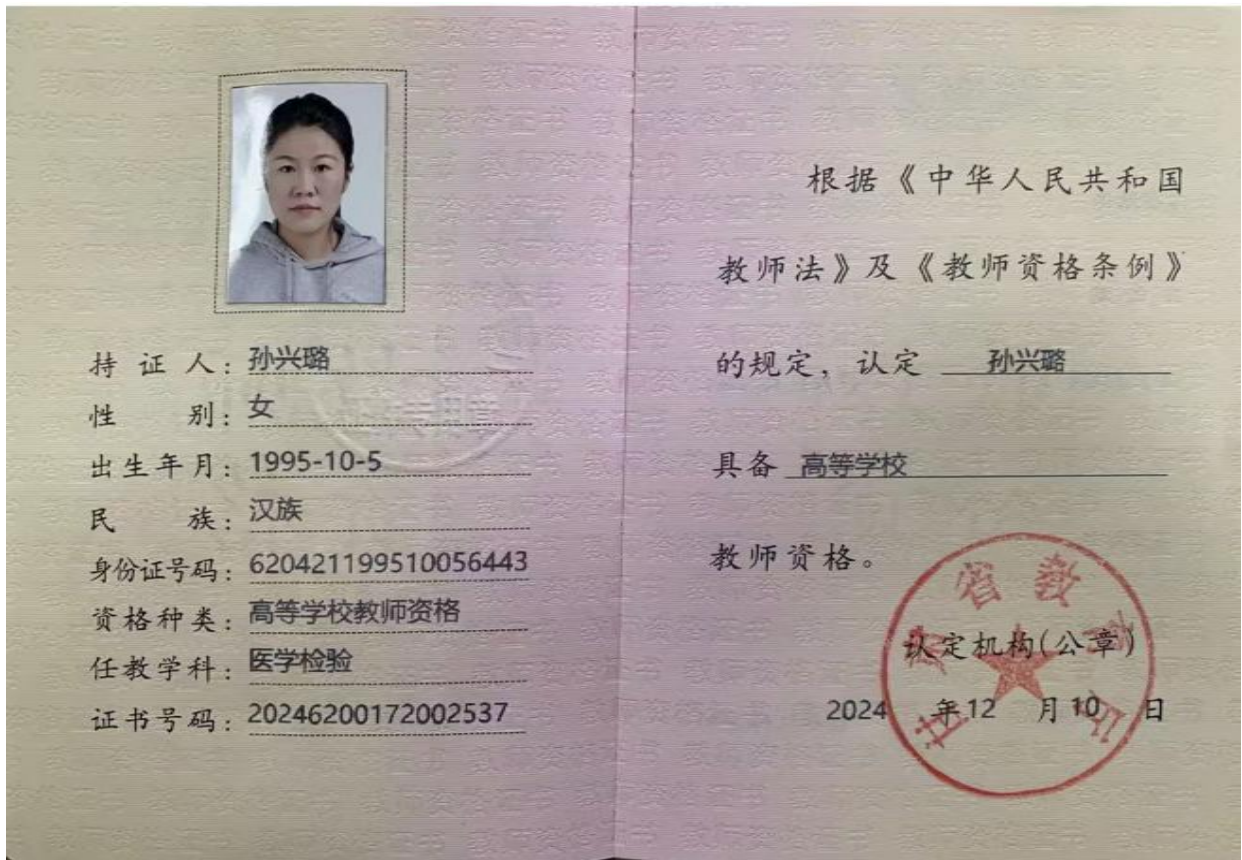 持证人：孙兴璐
性别：女
出生年月：1995-10-5
民族：汉族
身份证号码：620421199510056443
资格种类：高等学校教师资格
任教学科：医学检验
证书号码：20246200172002537
根据《中华人民共和国
教师法》及《教师资格条例》
的规定，认定 孙兴璐
具备 高等学校
教师资格。
认定机构(公章)
2024 年12 月10 日